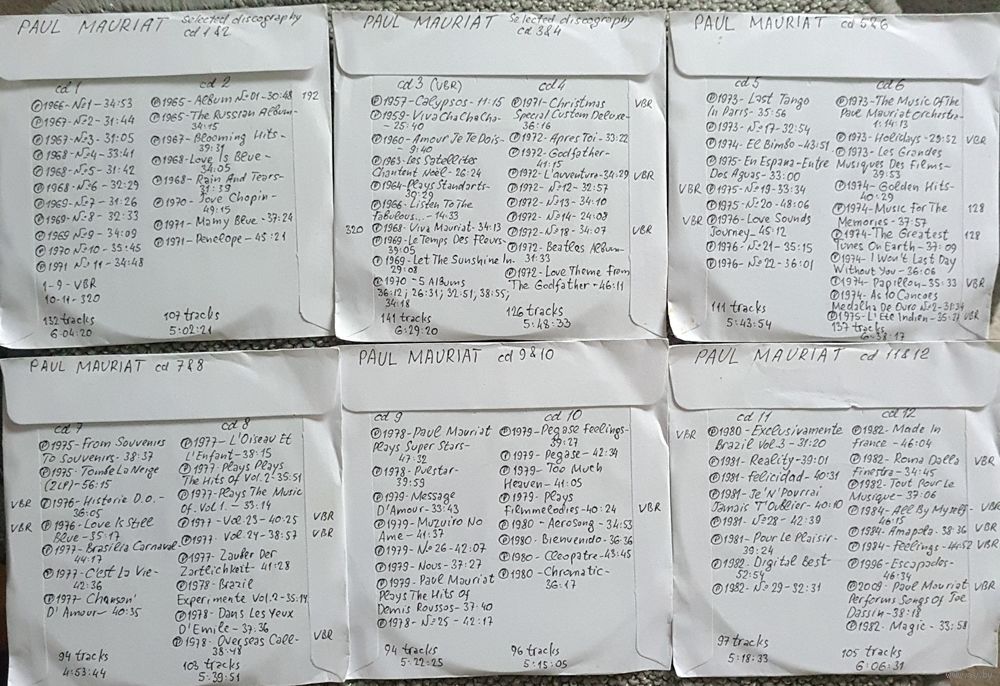 PAUL MAURIAT Selected discography
cd 1&2
cd 1
℗1966-№1-34:53
℗1967-№2-31:44
℗1967-№3-31:05
℗1968-№4-33:41
℗1968-№5-31:42
℗1968-№6-32:29
℗1969-№7-31:26
℗1969-№8-32:33
℗1969 №9-34:09
℗1970 №10-35:45
℗1971 №11-34:48
1-9-VBR
10-11-320
132 tracks
6:04:20
cd 2
℗1965-Album №01-30:48 192
℗1965-The Russian Album-
34:15
℗1967-Blooming Hits-
39:31
℗1968-Love Is Blue-
34:05
℗1968-Rain And Tears-
31:39
℗1970-Love Chopin-
49:15
℗1971-Mamy Blue-37:24
℗1971-Penelope-45:21
107 tracks
5:02:21
PAUL MAURIAT Selected discography
cd 3&4
cd 3 (VBR)
℗1957-Calypsos-11:15
℗1959-Viva Cha Cha Cha-
-25:40
℗1960-Amour Je Te Dois-
-9:40
℗1963-Les Satellites
Chantent Noël-26:24
℗1964-Plays Standarts-
30:29
℗1966-Listen To The
fabulous...-14:33
320 ℗1968-Viva Mauriat-34:13
℗1969-Le Temps Des Fleurs-
39:05
℗1969-Let The Sunshine In-
29:08
℗1970-5 Albums
36:12; 26:31; 32:51; 38:55;
34:18
141 tracks
6:29:20
cd 4
℗1971-Christmas VBR
Special Custom Deluxe-
36:16
℗1972-Apres Toi-33:22
℗1972-Godfather-
41:15
℗1972-L'avventura-34:29 VBR
℗1972-№12-32:57
℗1972-№13-34:10
℗1972-№14-24:08
℗1972-№18-34:07 VBR
℗1972-Beatles Album-
31:33
℗1972-Love Theme From
The Godfather-46:11
126 tracks
5:48:33
PAUL MAURIAT cd 5&6
cd 5
℗1973-Last Tango
In Paris-35:56
℗1973-№17-32:54
℗1974-El Bimbo-43:51
℗1975-En Espana-Entre
Dos Aguas-33:00
VBR ℗1975-№19-33:34
℗1975-№20-48:06
VBR ℗1976-Love Sounds
Journey-45:12
℗1976-№21-35:15
℗1976-№22-36:01
111 tracks
5:43:54
cd 6
℗1973-The Music Of The
Paul Mauriat Orchestra-
1:14:13
℗1973-Holidays-29:52 VBR
℗1973-Les Grandes
Musiques Des Films-
39:53
℗1974-Golden Hits-
40:29
℗1974-Music For The 128
Memories-37:57
℗1974-The Greatest 128
Tunes On Earth-37:09
℗1974-I Won't Last Day
Without You-36:06
℗1974-Papillon-35:33 VBR
℗1974-As 10 Cancoes
Medalha De Ouro №2-31:34
℗1975-L'Ete Indien-35:31 VBR
137 tracks
6:38:17
PAUL MAURIAT cd 7&8
cd 7
℗1975-From Souvenirs
To Souvenirs-38:37
℗1975-Tombe La Neige
(2LP)-56:15
VBR ℗1976-Historie D.O.-
36:05
VBR ℗1976-Love Is Still
Blue-35:17
℗1977-Brasilia Carnaval-
44:17
℗1977-C'est La Vie-
42:36
℗1977-Chanson
D'Amour-40:35
94 tracks
4:53:44
cd 8
℗1977-L'Oiseau Et
L'Enfant-38:15
℗1977-Plays Plays
The Hits Of Vol.2-35:51
℗1977-Plays The Music
Of Vol 1.-33:14
℗1977-Vol.23-40:25 VBR
℗1977-Vol.24-38:57 VBR
℗1977-Zauber Der
Zartlichkeit-41:28
℗1978-Brazil
Experimente Vol.2-35:14
℗1978-Dans Les Yeux
D'Emile-37:36
℗1978-Overseas Call- VBR
38:48
103 tracks
5:39:51
PAUL MAURIAT cd 9&10
cd 9
℗1978-Paul Mauriat
Plays Super Stars-
47:32
℗1978-Puestar-
39:59
℗1979-Message
D'Amour-33:43
℗1979-Muzuiro No
Ame-41:37
℗1979-№26-42:07
℗1979-Nous-37:27
℗1979-Paul Mauriat
Plays The Hits Of
Demis Roussos-37:40
℗1978-№25-42:17
94 tracks
5:22:25
cd 10
℗1979-Pegase Feelings-
39:27
℗1979-Pegase-42:34
℗1979-Too Much
Heaven-41:05
℗1979-Plays
Filmmelodies-40:24 VBR
℗1980-Aerosong-34:53
℗1980-Bienvenido-36:36
℗1980-Cleopatre-43:45
℗1980-Chromatic-
36:17
96 tracks
5:15:05
PAUL MAURIAT cd 11&12
cd 11
VBR ℗1980-Exclusivamente
Brazil Vol.3-31:20
℗1981-Reality-39:01
℗1981-felicidad-40:31
℗1981-Je'N'Pourrai
Jamais T'Oublier-40:10
℗1981-№28-42:39
℗1981-Pour Le Plaisir-
39:24
℗1982-Digital Best-
52:54
℗1982-№29-32:31
97 tracks
5:18:33
cd 12
℗1982-Made In
France-46:04
℗1982-Roma Dalla VBR
Finestra-34:45
℗1982-Tout Pour Le
Musique-37:06
℗1984-All By Myself- VBR
46:15
℗1984-Amapola-38:36 VBR
℗1984-Feelings-44:52 VBR
℗1996-Escapades-
46:34
℗2009-Paul Mauriat VBR
Performs Songs Of Joe
Dassin-38:18
℗1982-Magic-33:58
105 tracks
6:06:31
www.ay.by